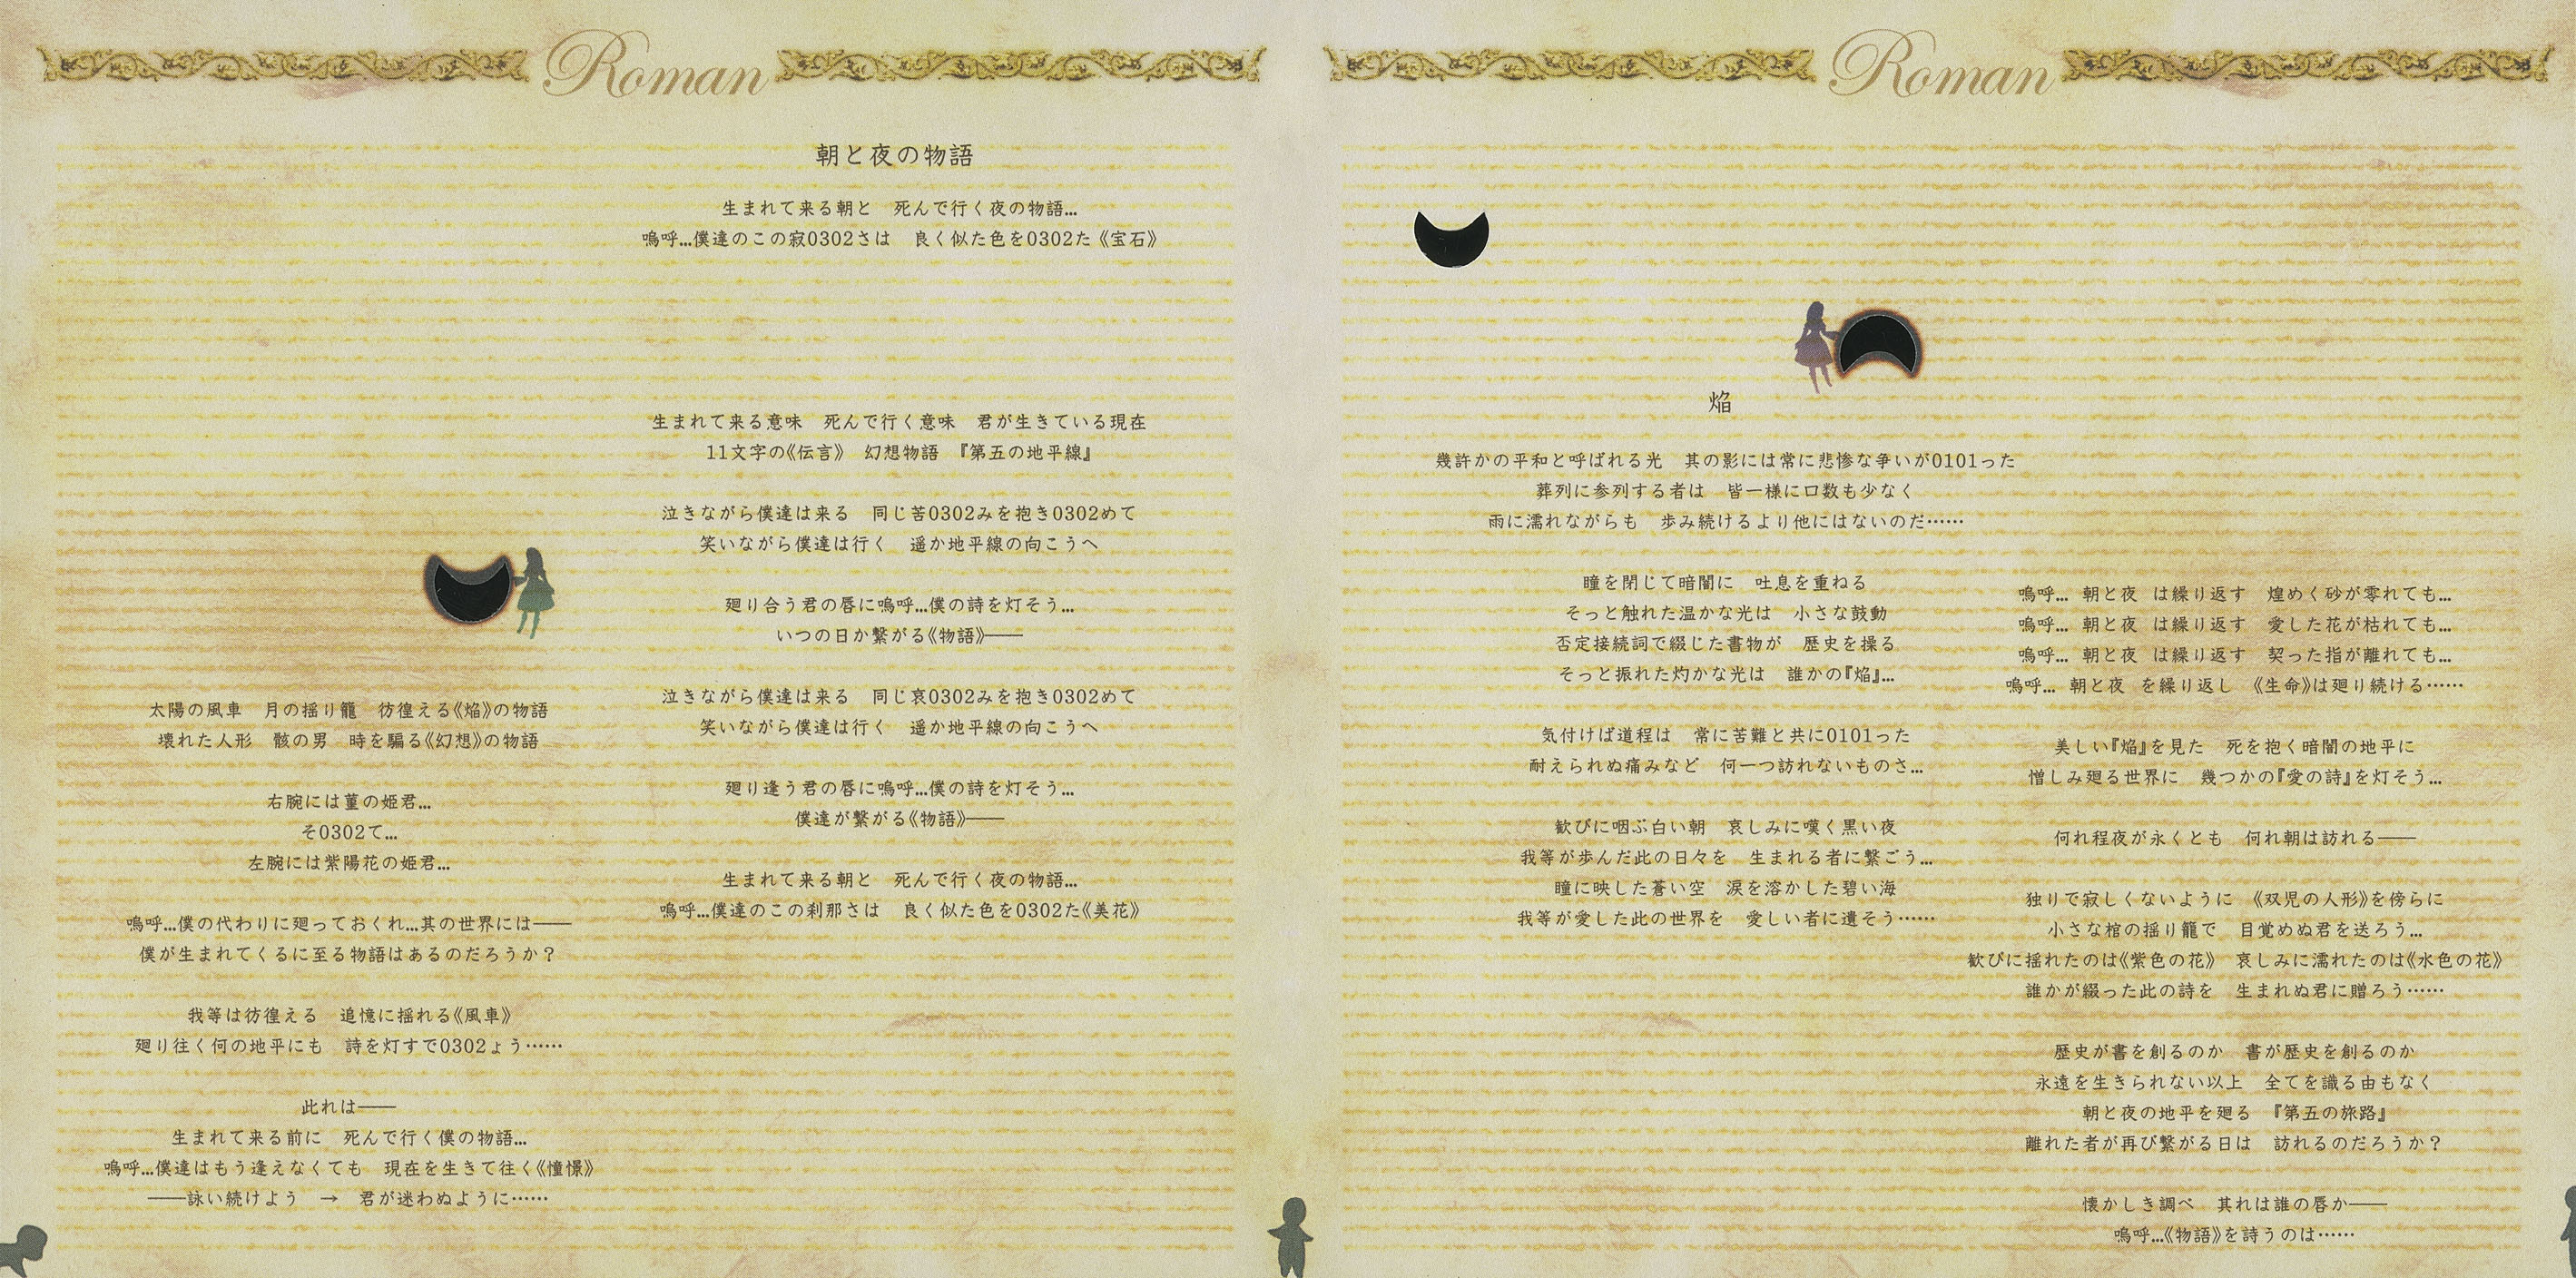 Roman
朝と夜の物語
生まれて来る朝と　死んで行く夜の物語...
嗚呼...僕達のこの寂0302さは　良く似た色を0302た《宝石》
生まれて来る意味　死んで行く意味　君が生きている現在
11文字の《伝言》　幻想物語　『第五の地平線』
泣きながら僕達は来る　同じ苦0302みを抱き0302めて
笑いながら僕達は行く　遥か地平線の向こうへ
廻り合う君の唇に嗚呼...僕の詩を灯そう...
いつの日か繋がる《物語》――
泣きながら僕達は来る　同じ哀0302みを抱き0302めて
笑いながら僕達は行く　遥か地平線の向こうへ
廻り逢う君の唇に嗚呼...僕の詩を灯そう...
僕達が繋がる《物語》――
生まれて来る朝と　死んで行く夜の物語...
嗚呼...僕達のこの刹那さは　良く似た色を0302た《美花》
太陽の風車　月の揺り籠　彷徨える《焔》の物語
壊れた人形　骸の男　時を騙る《幻想》の物語
右腕には菫の姫君...
そ0302て...
左腕には紫陽花の姫君...
嗚呼...僕の代わりに廻っておくれ...其の世界には――
僕が生まれてくるに至る物語はあるのだろうか？
我等は彷徨える　追憶に揺れる《風車》
廻り往く何の地平にも　詩を灯すで0302ょう……
此れは――
生まれて来る前に　死んで行く僕の物語...
嗚呼...僕達はもう逢えなくても　現在を生きて往く《憧憬》
――詠い続けよう　→　君が迷わぬように……
Roman
焔
幾許かの平和と呼ばれる光　其の影には常に悲惨な争いが0101った
葬列に参列する者は　皆一様に口数も少なく
雨に濡れながらも　歩み続けるより他にはないのだ……
瞳を閉じて暗闇に　吐息を重ねる
そっと触れた温かな光は　小さな鼓動
否定接続詞で綴じた書物が　歴史を操る
そっと振れた灼かな光は　誰かの『焔』...
気付けば道程は　常に苦難と共に0101った
耐えられぬ痛みなど　何一つ訪れないものさ...
歓びに咽ぶ白い朝　哀しみに嘆く黒い夜
我等が歩んだ此の日々を　生まれる者に繋ごう...
瞳に映した蒼い空　涙を溶かした碧い海
我等が愛した此の世界を　愛しい者に遺そう……
嗚呼...　朝と夜　は繰り返す　煌めく砂が零れても...
嗚呼...　朝と夜　は繰り返す　愛した花が枯れても...
嗚呼...　朝と夜　は繰り返す　契った指が離れても...
嗚呼...　朝と夜　を繰り返し　《生命》は廻り続ける……
美しい『焔』を見た　死を抱く暗闇の地平に
憎しみ廻る世界に　幾つかの『愛の詩』を灯そう...
何れ程夜が永くとも　何れ朝は訪れる――
独りで寂しくないように　《双児の人形》を傍らに
小さな棺の揺り籠で　目覚めぬ君を送ろう...
歓びに揺れたのは《紫色の花》　哀しみに濡れたのは《水色の花》
誰かが綴った此の詩を　生まれぬ君に贈ろう……
歴史が書を創るのか　書が歴史を創るのか
永遠を生きられない以上　全てを識る由もなく
朝と夜の地平を廻る　『第五の旅路』
離れた者が再び繋がる日は　訪れるのだろうか？
懐かしき調べ　其れは誰の唇か――
嗚呼...《物語》を詩うのは……